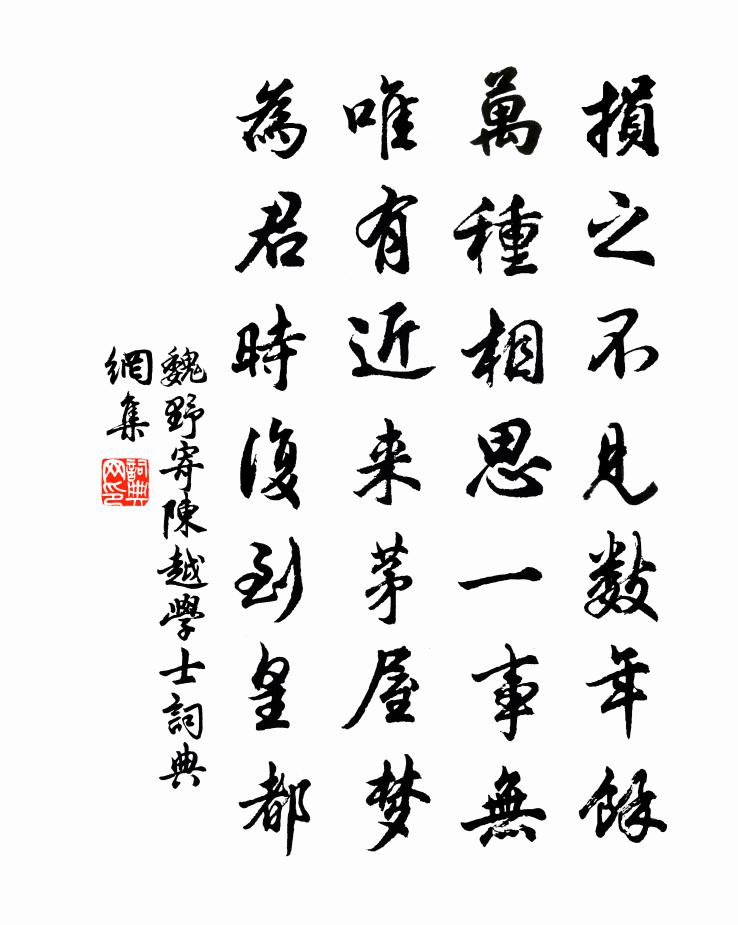 損之不見數年餘
萬種相思一事無
唯有近来茅屋梦
為君時復到皇都
魏野寄陳越學士詞典
網集
詞典
网印